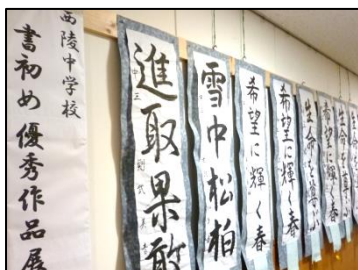 西陵中学校
書初め優秀作品展
進取果敢
雪中松柏
希望に輝く春
希望に輝く春
生命を尊ぶ
希望に輝く春
生命を尊ぶ